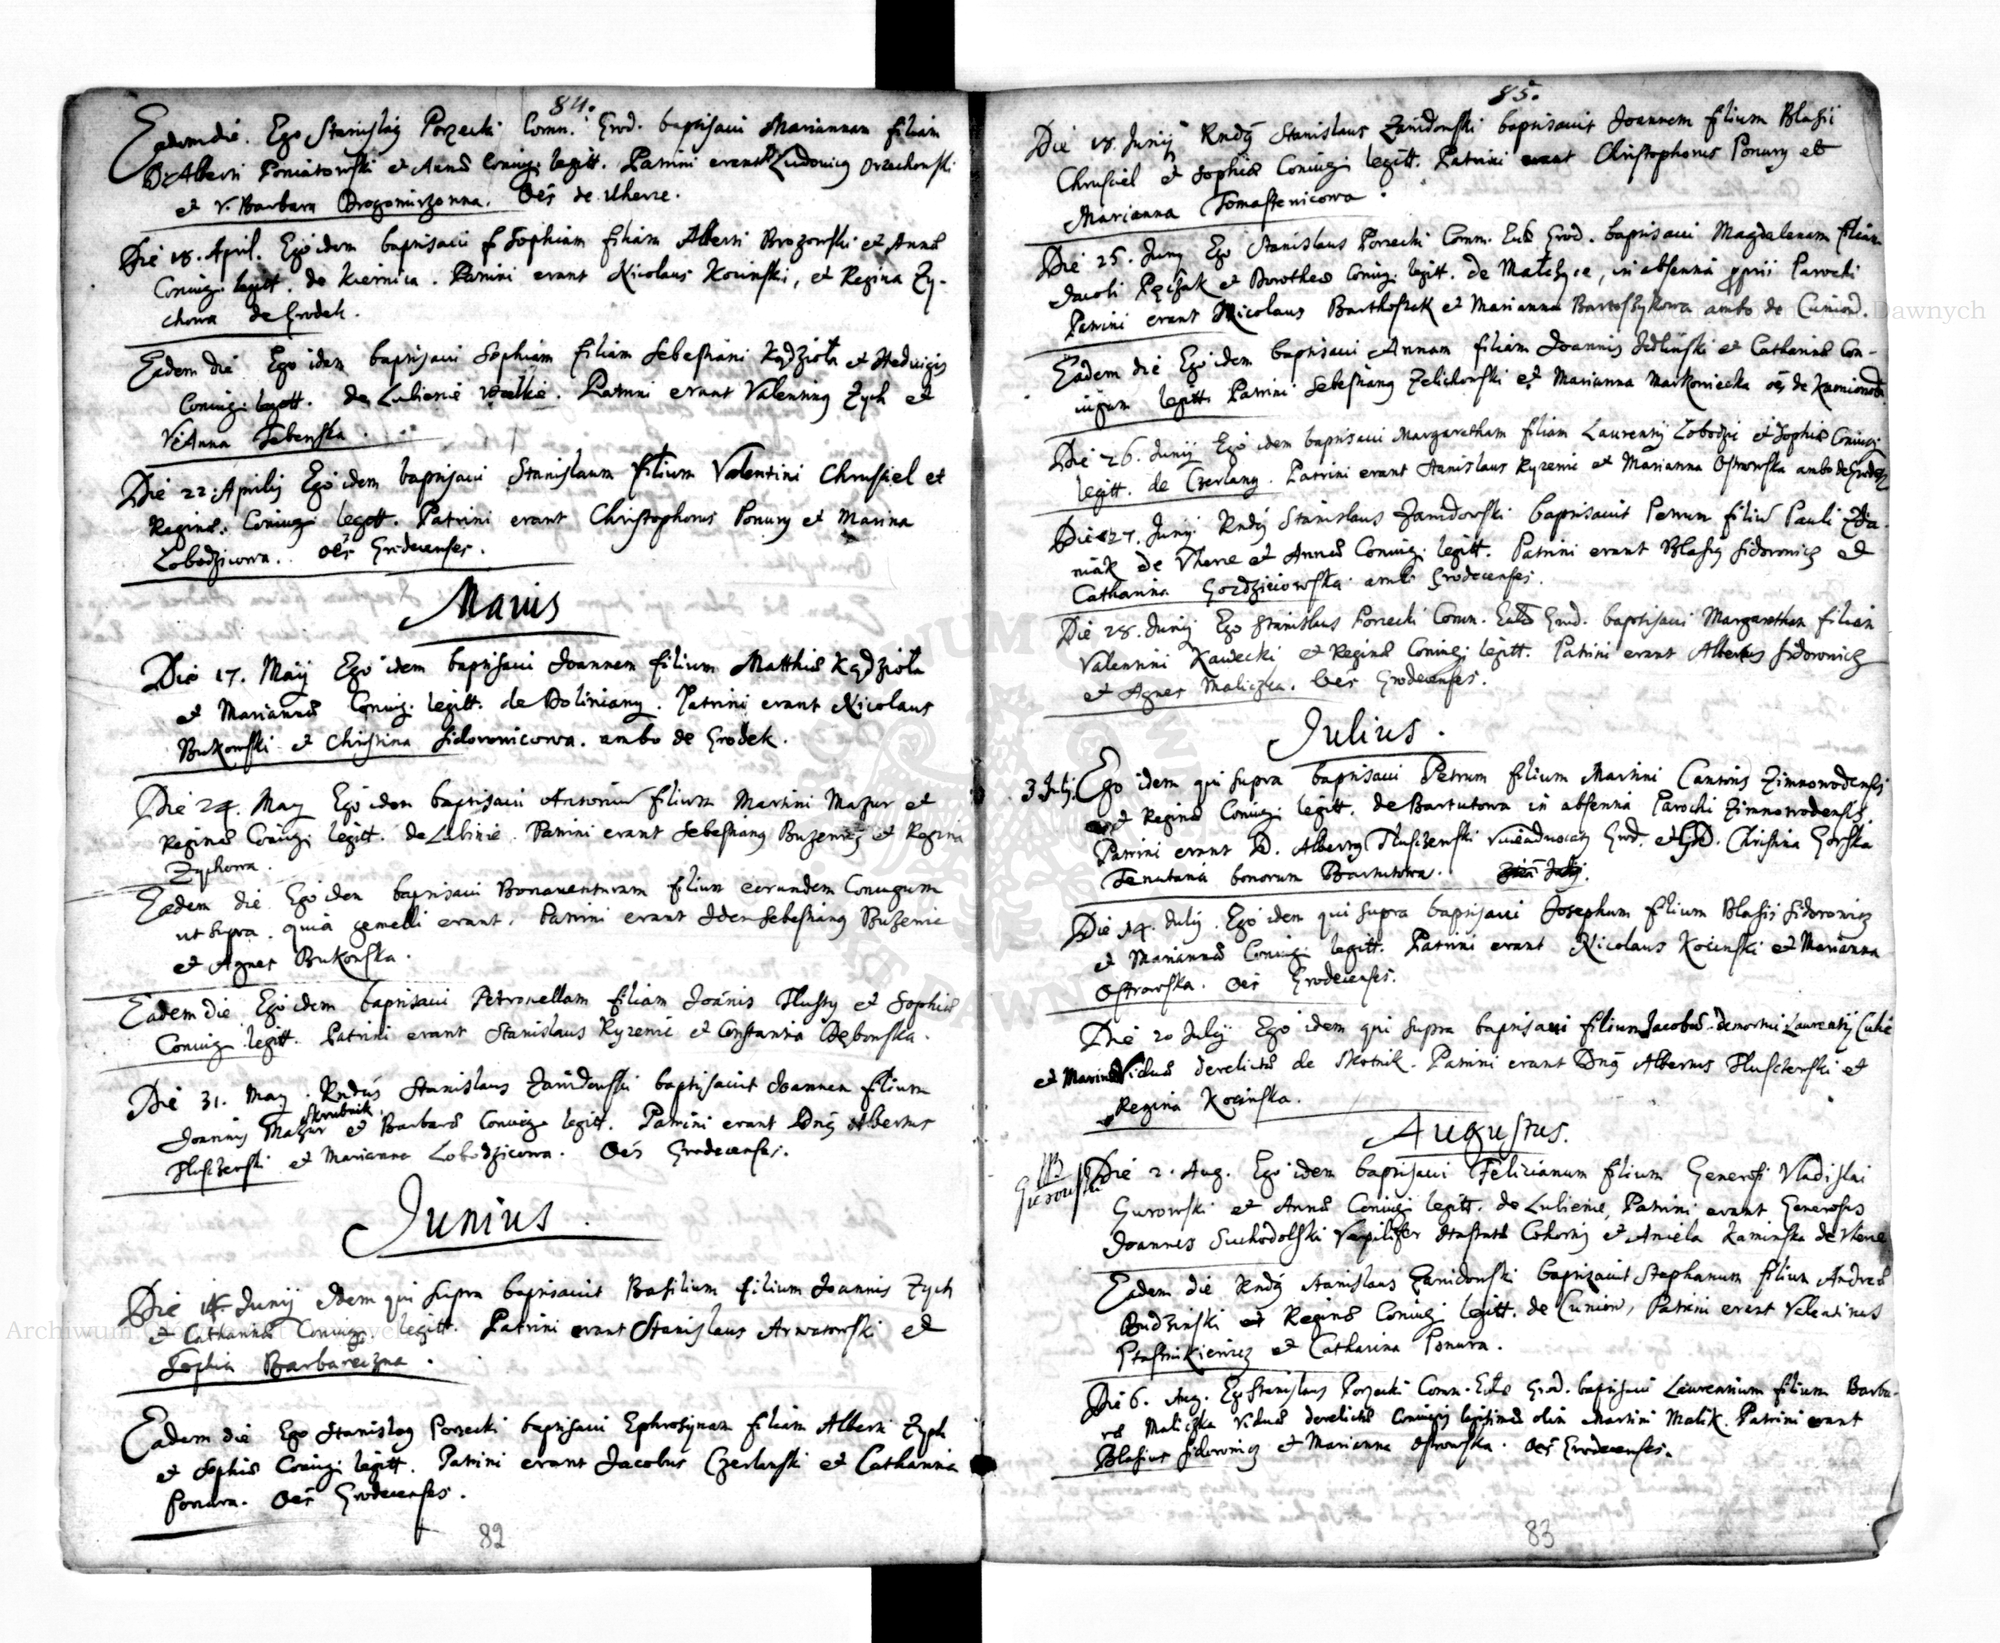 84.
Eadem die. Ego Stanislaus Porzecki Comm. Grod. baptisavi Mariannam filiam
D. Alberti Poniatowski et Annae Coniug. legitt. Patrini erant D. Ludovicus Orzechowski
et V. Barbara Drogomirzonna. Oes de Uherce.
Die 18. April. Ego idem baptisavi Sophiam filiam Alberti Brozowski et Annae
Coniug. legitt. de Kiernica. Patrini erant Nicolaus Kocinski, et Regina Zy-
chowa de Grodek.
Eadem die Ego idem baptisavi Sophiam filiam Sebestiani Kędzioła et Hedvigis
Coniug. legitt. de Lubienie Wielkie. Patrini erant Valentinus Zych et
V. Anna
Die 22. Aprilis Ego idem baptisavi Stanislaum filium Valentini Chrusciel et
Reginae Coniug. legitt. Patrini erant Christophorus Ponury et Marina
Lobodzicowa. Oes Grodecenses.
Maius
Die 17. Maij Ego idem baptisavi Joannem filium Matthiae Kędzioła
et Mariannae Coniug. legitt. de Doliniany. Patrini erant Nicolaus
Bukowski et Christina Sidorowicowa. ambo de Grodek.
Die 24. May Ego idem baptisavi Antoniu filium Martini Mazur et
Reginae Coniug. legitt. de Lubinie. Patrini erant Sebestianus Buzenic et Regina
Zychowa.
Eadem die Ego idem baptisavi Bonaventuram filium eorundem Coniugum
ut supra. quia gemelli erant. Patrini erant Idem Sebestianus Buzenic
et Agnes Bukowska.
Eadem die Ego idem baptisavi Petronellam filiam Joannis Tlusty et Sophiae
Coniug. legitt. Patrini erant Stanislaus Ryzenic et Constantia Dębowska.
Die 31. May. Rndus Stanislaus Zawidowski baptisavit Joannem filium
Skrubnik
Joannis Mazur et Barbarae Coniug. legitt. Patrini erant Dnus Albertus
Tlusczewski et Marianna Lobodzicowa. Oes Grodecenses.
Junius
Die Junij Idem qui supra baptisavit Basilium filium Joannis Zych
et Catharinae Coniug. legitt. Patrini erant Stanislaus Arwatowski et
Sophia
Eadem die Ego Stanislaus Porzecki baptisavi Ephrosynam filiam Alberti Zyph
et Sophiae Coniug. legitt. Patrini erant Jacobus Czerlunski et Catharina
Ponura. Oes Grodecenses.
82
85.
Die 18. Junij Rndus Stanislaus Zawidowski baptisavit Joannem filium Blasii
Chrusciel et Sophiae Coniug. legitt. Patrini erant Christophorus Ponury et
Marianna Tomasze­wicowa.
Die 25. Juny Ego Stanislaus Porzecki Comm. Eccl. Grod. baptisavi Magdalenam filiam
Jacobi Pęczak et Dorotheae Coniug. legitt. de Malczyce, in absentia proprii Parochi
Patrini erant Nicolaus Barthoszek et Marianna Bartoszykowa ambo de Cuniow.
Eadem die Ego idem baptisavi Annam filiam Joannis Jedlinski et Catharinae Con-
iugum legitt. Patrini Sebestianus Zelichowski et Marianna Markoniecka oes de
Die 26. Junij Ego idem baptisavi Margaretham filiam Laurentij Lobodzic et Sophiae Coniug.
legitt. de Czerlany. Patrini erant Stanislaus Ryzenic et Marianna Ostrowska ambo de Grodek
Die 27. Junij Rndus Stanislaus Zawidowski baptisavit Petrum filiu Pauli
niak de Uherce et Annae Coniug. legitt. Patrini erant Blasius Sidorowicz et
Catharina ambo Grodecenses.
Die 28. Junij Ego Stanislaus Porzecki Comm. Eccl. Grod. baptisavi Margaretham filiam
Valentini Kawecki et Reginae Coniug. legitt. Patrini erant Albertus Sidorowicz
et Agnes Maliczka. Oes Grodecenses.
Julius.
3 July. Ego idem qui supra baptisavi Petrum filium Martini Cantoris Zimnowodensis
et Reginae Coniug. legitt. de Bartatowa in absentia Parochi Zimnowodensis.
Patrini erant D. Albertus Tlusczewski Viceadvocatus Grod. et D. Christina Gorska
Tenutaria bonorum Bartatowa.
Die 14. July. Ego idem qui supra baptisavi Josephum filium Blasii Sidorowicz
et Mariannae Coniug. legitt. Patrini erant Nicolaus Kocinski et Marianna
Ostrowska. Oes Grodecenses.
Die 20 July Ego idem qui supra baptisavi filium Jacobu demortui Laurentij
et Marinae Viduae derelictae de Skotnik. Patrini erant Dnus Albertus Tlusczewski et
Regina Kocinska.
Augustus.
Gurowski
Die 2. Aug. Ego idem baptisavi Felicianum filium Generosi Vladislai
Gurowski et Annae Coniug. legitt. de Lubienie, Patrini erant Generosus
Joannes Suchodolski Vexilifer Cohortis et Aniela Kaminska de Uherce
Eadem die Rndus Stanislaus Zawidowski baptizavit Stephanum filium Andreae
Budzinski et Reginae Coniug. legitt. de Cuniow, Patrini erant Valentinus
Ptasznikiewicz et Catharina Ponura.
Die 6. Aug. Ego Stanislaus Porzecki Comm. Eccl. Grod. baptisavi Laurentium filium Barba-
rae Maliczka Viduae derelictae Coniugis legitimae olim Martini Malik. Patrini erant
Blasius Sidorowicz et Marianna Ostrowska. Oes Grodecenses.
83